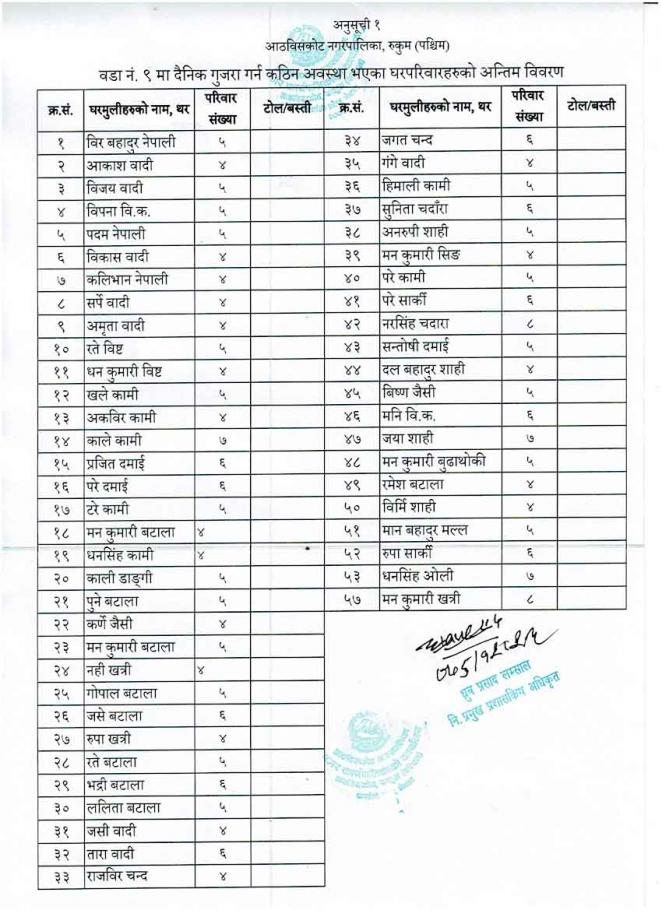 अनुसूची १
आठविसकोट नगरपालिका, रुकुम (पश्चिम)
वडा नं. ९ मा दैनिक गुजरा गर्न कठिन अवस्था भएका घरपरिवारहरुको अन्तिम विवरण
क्र.सं. घरमुलीहरुको नाम, थर परिवार संख्या टोल/बस्ती क्र.सं. घरमुलीहरुको नाम, थर परिवार संख्या टोल/बस्ती
१ विर बहादुर नेपाली ५ ३४ जगत चन्द ६
२ आकाश वादी ४ ३५ गंगे वादी ४
३ विजय वादी ५ ३६ हिमाली कामी ५
४ विपना वि.क. ५ ३७ सुनिता चदाँरा ६
५ पदम नेपाली ५ ३८ अनरुपी शाही ५
६ विकास वादी ४ ३९ मन कुमारी सिङ ४
७ कलिभान नेपाली ४ ४० परे कामी ५
८ सर्पे वादी ४ ४१ परे सार्की ६
९ अमृता वादी ४ ४२ नरसिंह चदारा ८
१० रते विष्ट ५ ४३ सन्तोषी दमाई ५
११ धन कुमारी विष्ट ४ ४४ दल बहादुर शाही ४
१२ खले कामी ५ ४५ बिष्ण जैसी ५
१३ अकविर कामी ४ ४६ मनि वि.क. ६
१४ काले कामी ७ ४७ जया शाही ७
१५ प्रजित दमाई ६ ४८ मन कुमारी बुढाथोकी ५
१६ परे दमाई ६ ४९ रमेश बटाला ४
१७ टरे कामी ५ ५० विर्मि शाही ४
१८ मन कुमारी बटाला ४ ५१ मान बहादुर मल्ल ५
१९ धनसिंह कामी ४ ५२ रुपा सार्की ६
२० काली डाङ्गी ५ ५३ धनसिंह ओली ७
२१ पुने बटाला ५ ५७ मन कुमारी खत्री ८
२२ कर्णे जैसी ४
२३ मन कुमारी बटाला ५
२४ नही खत्री ४
२५ गोपाल बटाला ५
२६ जसे बटाला ६
२७ रुपा खत्री ४
२८ रते बटाला ५
२९ भद्री बटाला ६
३० ललिता बटाला ५
३१ जसी वादी ४
३२ तारा वादी ६
३३ राजविर चन्द ४
ध्रुव प्रसाद लम्साल
नि. प्रमुख प्रशासकिय अधिकृत